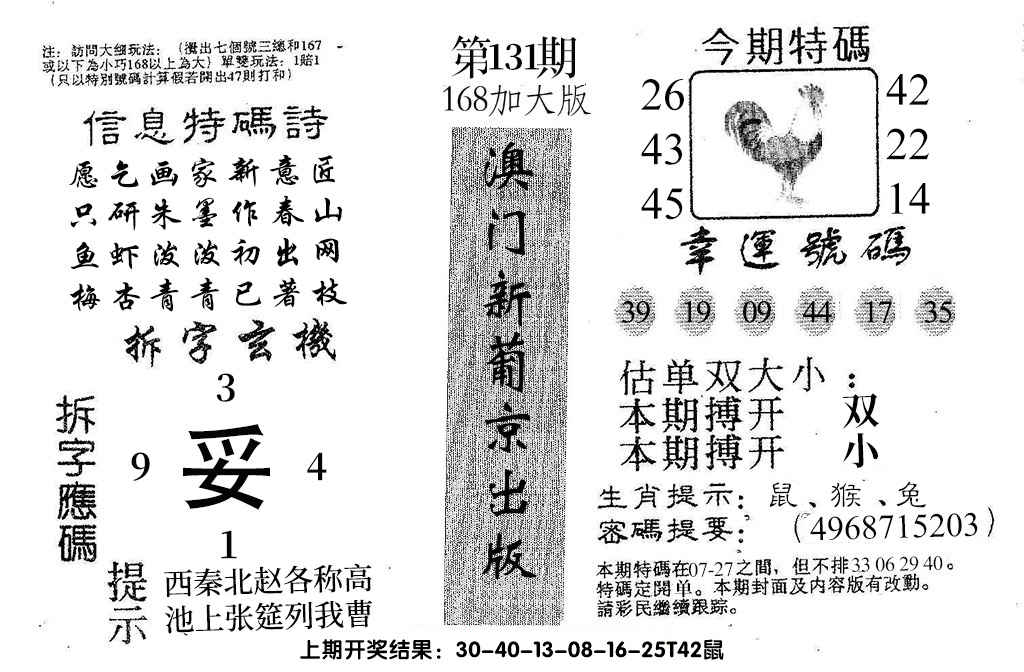 注：訪問大细玩法：（攪出七個號三總和167
或以下為小巧168以上為大）單雙玩法：1賠1
（只以特別號碼計算假若開出47則打和）
信息特碼詩
愿乞画家新意匠
只研朱墨作春山
鱼虾泼泼初出网
梅杏青青已著枝
拆字玄機
拆字應碼
3
9 妥 4
1
提示
西秦北赵各称高
池上张筵列我曹
第131期
168加大版
澳门新葡京出版
今期特碼
26 42
43 22
45 14
幸運號碼
39 19 09 44 17 35
估单双大小：
本期搏开 双
本期搏开 小
生肖提示：鼠、猴、兔
密碼提要：（4968715203）
本期特碼在07-27之間，但不排33 06 29 40。
特碼定開单。本期封面及内容版有改動。
請彩民繼續跟踪。
上期开奖结果：30-40-13-08-16-25T42鼠